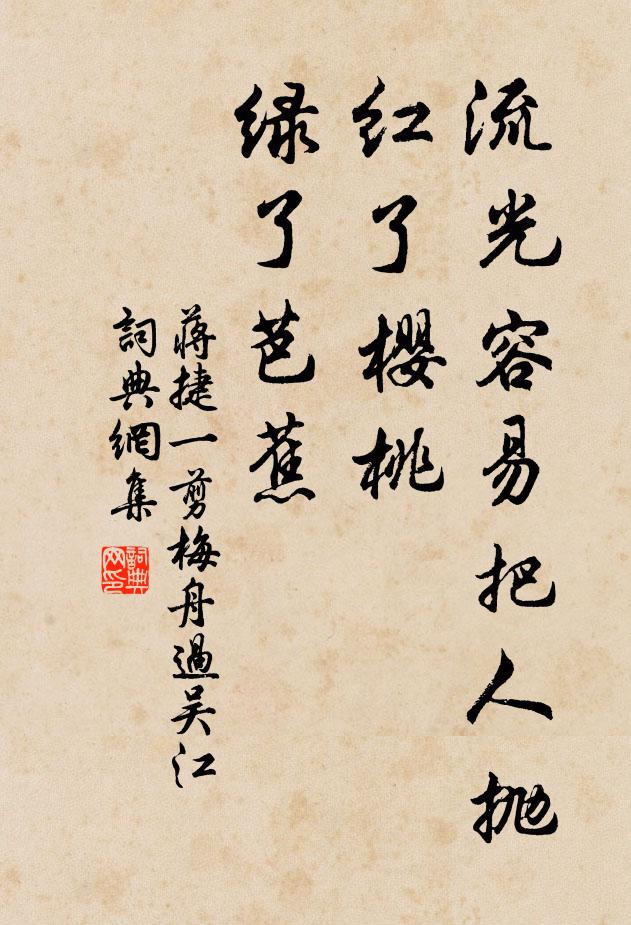 流光容易把人抛
红了樱桃
绿了芭蕉
蒋捷一剪梅舟過吴江
詞典網集
詞典网印